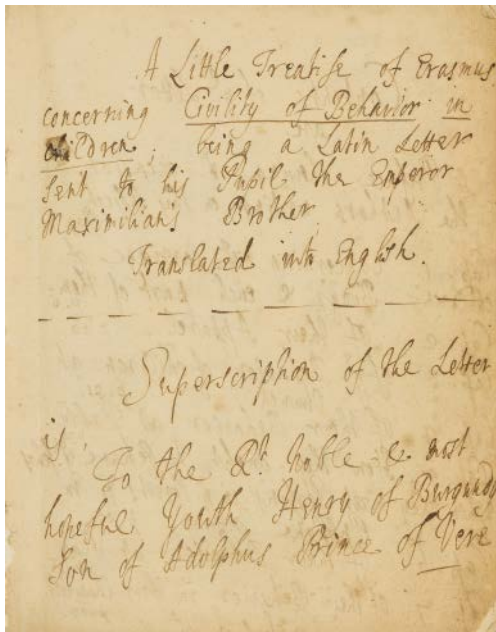 A Little Treatise of Erasmus
concerning Civility of Behavior in
children; being a Latin Letter
sent to his Pupil the Emperor
Maximilian's Brother
Translated into English.
Superscription of the Letter
is.
To the Rt. Noble & most
hopeful Youth Henry of Burgundy
Son of Adolphus Prince of Vere